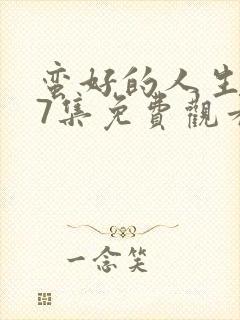 蛮好的人生
7集免費觀看
一念笑